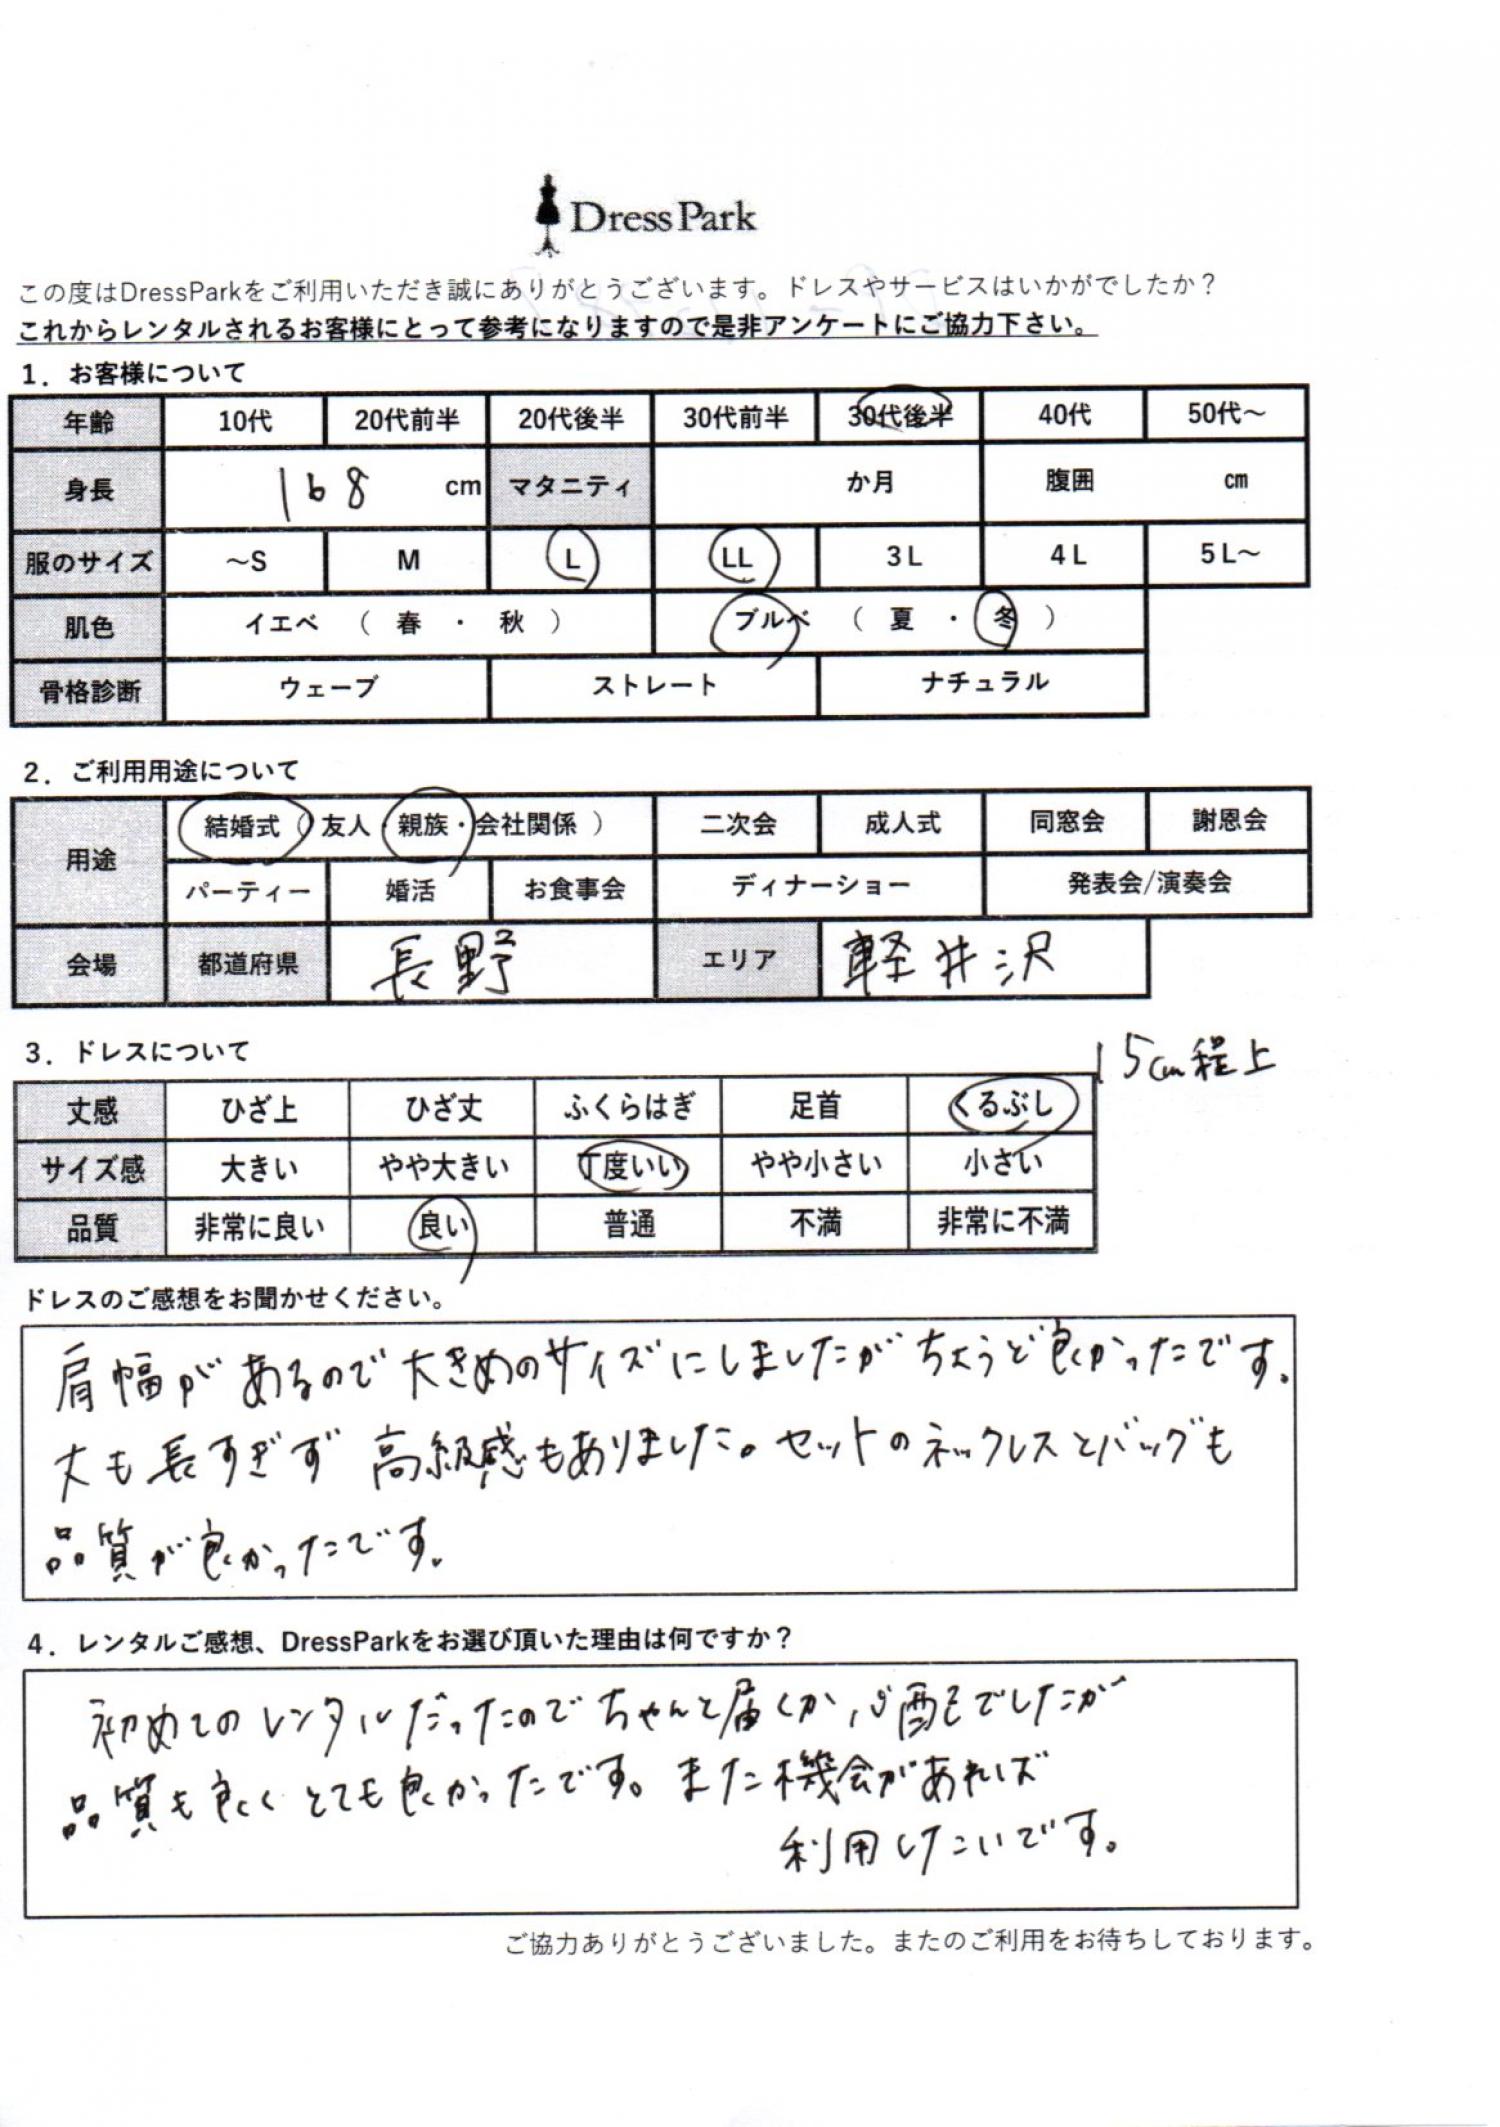 Dress Park
この度はDressParkをご利用いただき誠にありがとうございます。ドレスやサービスはいかがでしたか？
これからレンタルされるお客様にとって参考になりますので是非アンケートにご協力下さい。
1．お客様について
年齢 10代 20代前半 20代後半 30代前半 30代後半 40代 50代～
身長 168 cm マタニティ か月 腹囲 ㎝
服のサイズ ～S M L LL 3L 4L 5L～
肌色 イエベ （ 春 ・ 秋 ） ブルベ （ 夏 ・ 冬 ）
骨格診断 ウェーブ ストレート ナチュラル
2．ご利用用途について
用途 結婚式（ 友人・親族・会社関係 ） 二次会 成人式 同窓会 謝恩会
パーティー 婚活 お食事会 ディナーショー 発表会/演奏会
会場 都道府県 長野 エリア 軽井沢
3．ドレスについて
15cm程上
丈感 ひざ上 ひざ丈 ふくらはぎ 足首 くるぶし
サイズ感 大きい やや大きい 丁度いい やや小さい 小さい
品質 非常に良い 良い 普通 不満 非常に不満
ドレスのご感想をお聞かせください。
肩幅があるので大きめのサイズにしましたがちょうど良かったです。
丈も長すぎず 高級感もありました。セットのネックレスとバッグも
品質が良かったです。
4．レンタルご感想、DressParkをお選び頂いた理由は何ですか？
初めてのレンタルだったのでちゃんと届くか心配でしたが
品質も良くとても良かったです。また機会があれば
利用したいです。
ご協力ありがとうございました。またのご利用をお待ちしております。